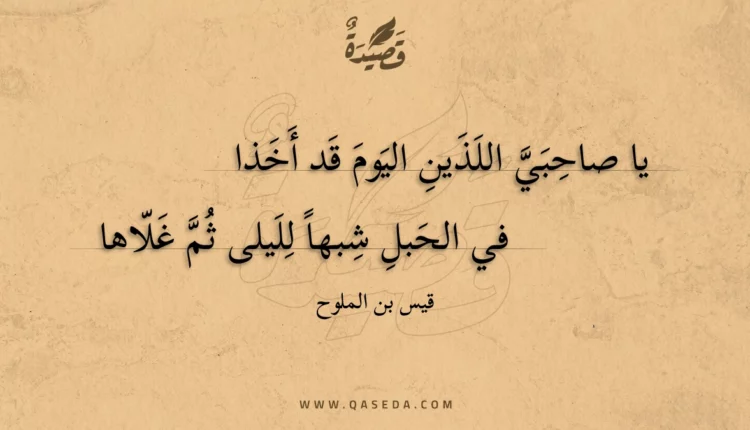 قَصِيدَةٌ
يا صاحِبَيَّ اللَذَينِ اليَومَ قَد أَخَذا
في الحَبلِ شِبهاً لِلَيلى ثُمَّ غَلّاها
قيس بن الملوح
WWW.QASEDA.COM